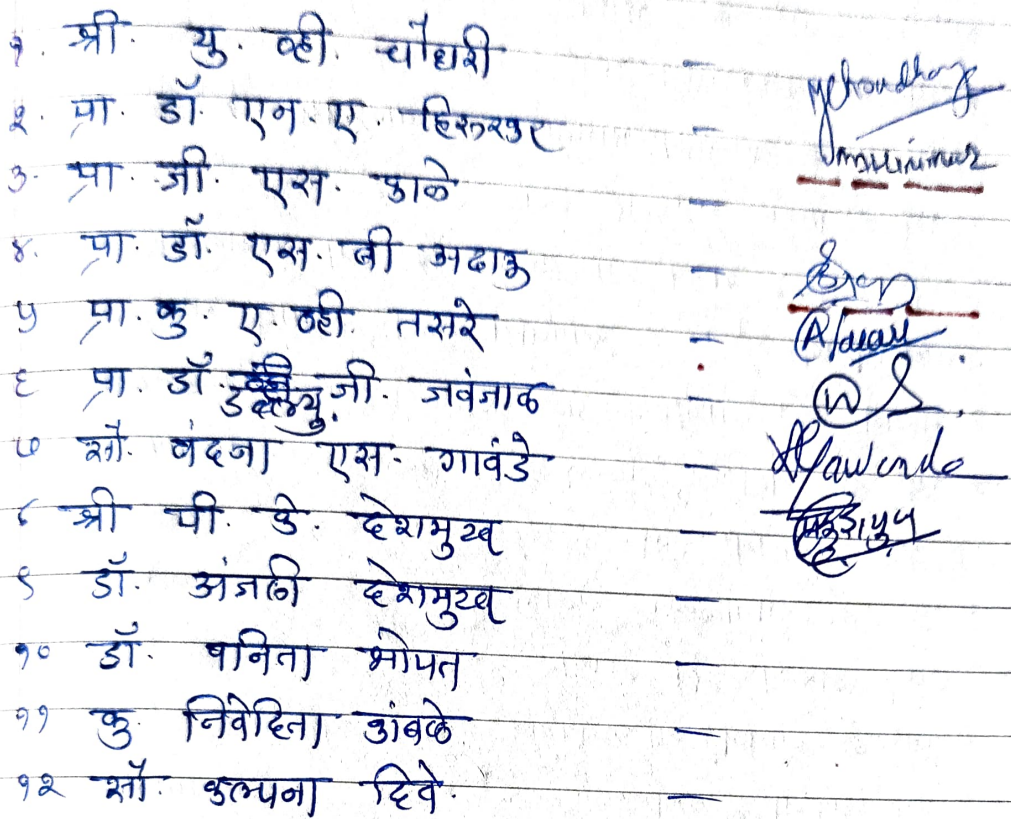 १. श्री. यु. व्ही. चौधरी -
२. प्रा. डॉ. एन. ए. हिरुरकर -
३. प्रा. जी. एस. काळे -
४. प्रा. डॉ. एस. बी अदाऊ -
५ प्रा. कु. ए. व्ही. तसरे -
६ प्रा. डॉ. डब्ल्यु. जी. जवंजाळ -
७ सौ. वंदना एस. गावंडे - Gawande
८ श्री पी. के. देशमुख -
९ डॉ. अंजली देशमुख -
१० डॉ. वनिता भोपत -
११ कु. निवेदिता कांबळे -
१२ सौ. कल्पना दिवे. -